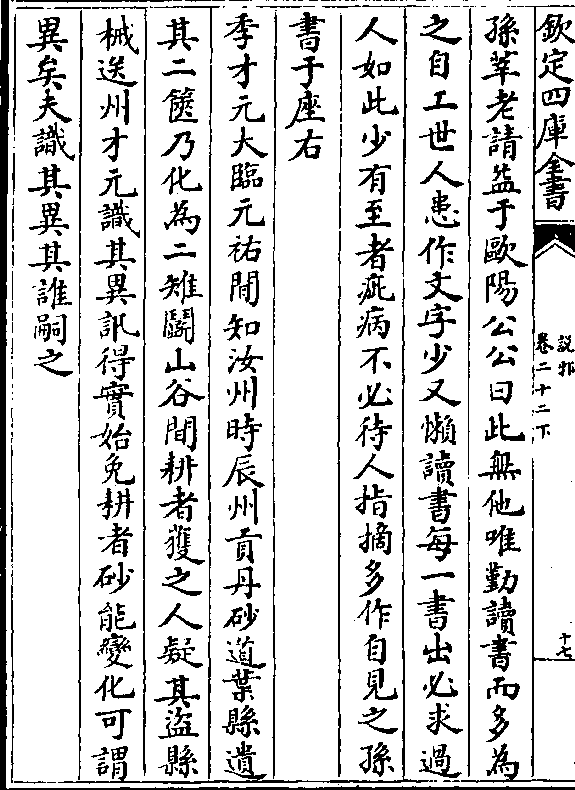 欽定四庫全書
說郛
卷二十二下
十七
孫莘老請益于歐陽公公曰此無他唯勤讀書而多為
之自工世人患作文字少又懶讀書每一書出必求過
人如此少有至者疵病不必待人指摘多作自見之孫
書于座右
季才元大臨元祐間知汝州時辰州貢丹砂道葉縣遺
其二篋乃化為二雉鬭山谷間耕者獲之人疑其盜縣
械送州才元識其異訊得實始免耕者砂能變化可謂
異矣夫識其異其誰嗣之